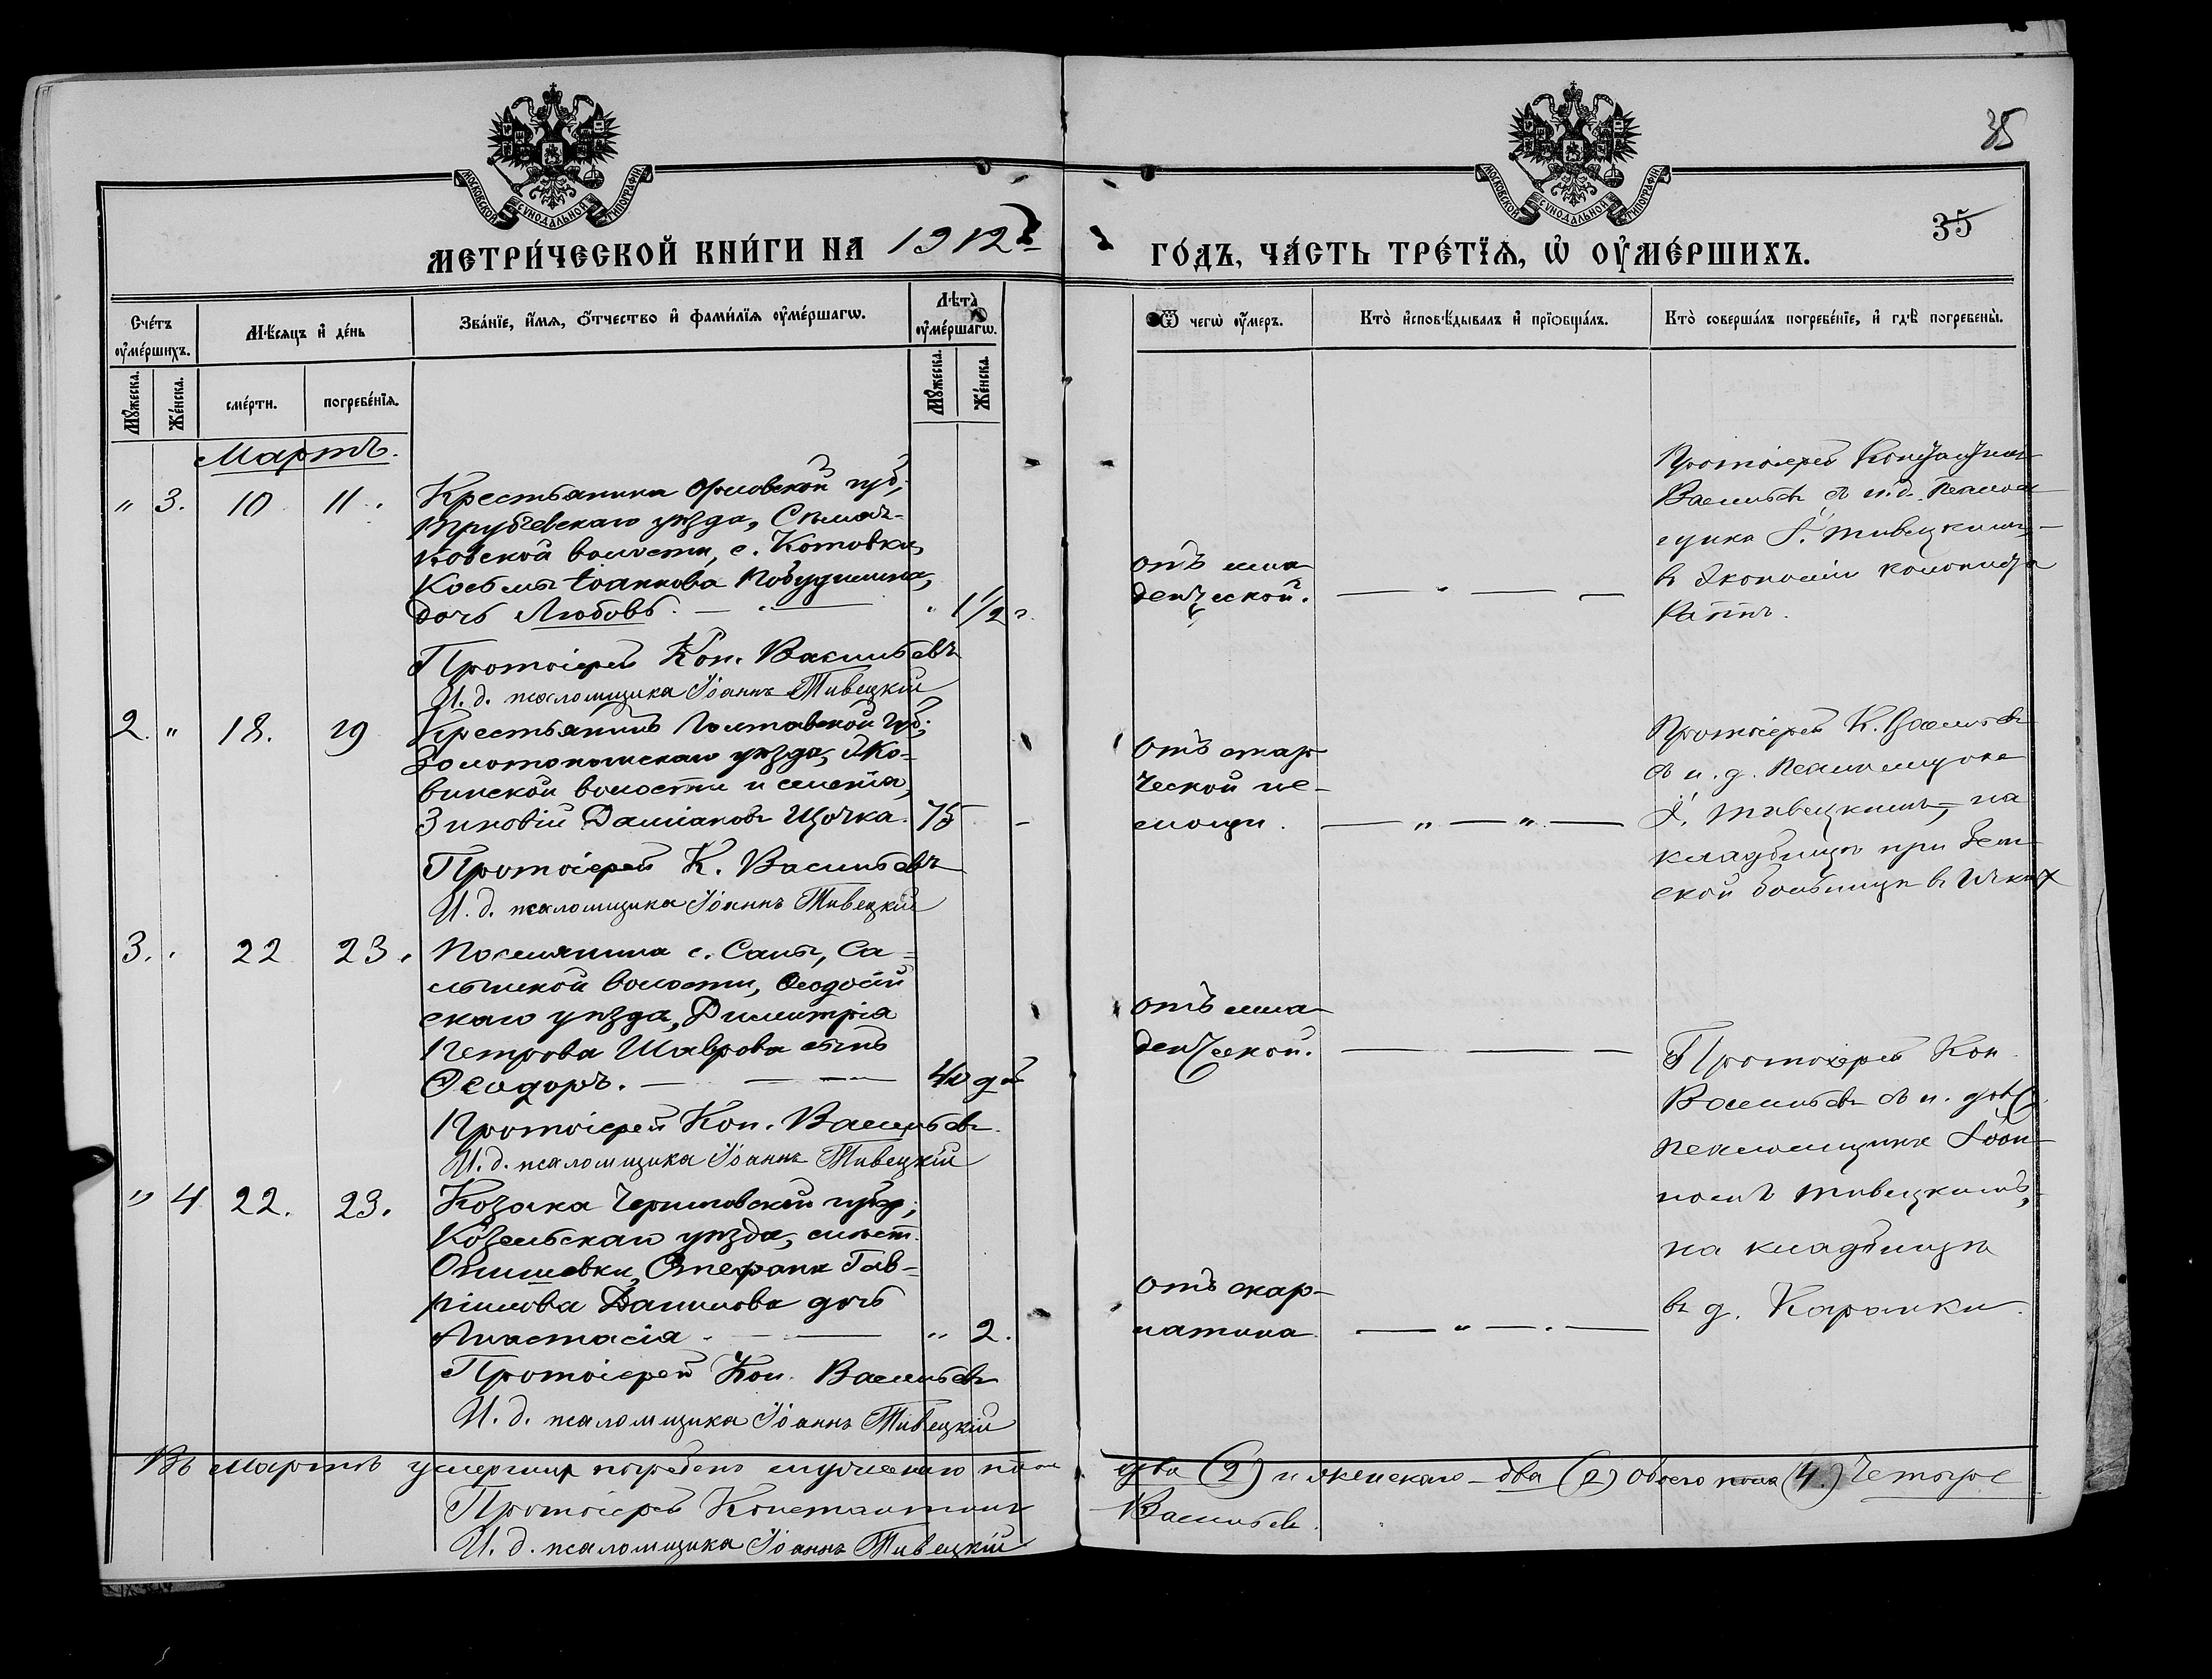 МОСКОВСКОЙ СѴНОДАЛЬНОЙ ТИПОГРАФІИ
МОСКОВСКОЙ СѴНОДАЛЬНОЙ ТИПОГРАФІИ
35
35
МЕТРИ́ЧЕСКОЙ КНИ́ГИ НА 1912
ГО́ДЪ, ЧА́СТЬ ТРЕ́ТЇѦ, Ѡ҆ ОУ҆МЕ́РШИХЪ.
Сче́тъ оу҆ме́ршихъ.
Мѣ́сѧцъ и҆ де́нь
Зва́нїе, и҆́мѧ, ѻ҆́тчество и҆ фами́лїѧ оу҆ме́ршагѡ.
Лѣта̀ оу҆ме́ршагѡ.
Ѿ чегѡ̀ оу҆́меръ.
Кто̀ и҆сповѣ́дывалъ и҆ прїѡбща́лъ.
Кто̀ соверша́лъ погребе́нїе, и҆ гдѣ̀ погребены̀.
Мꙋ́жеска.
Же́нска.
сме́рти.
погребе́нїѧ.
Мꙋ́жеска.
Же́нска.
Мартъ.
" 3. 10 11.
Крестьянина Орловской губ;
Трубчевскаго уѣзда,
волости, с. Котовки,
Косьмы Іоаннова
дочь Любовь. — " 1 1/2 г.
Протоіерей Кон. Васильевъ
И. д. псаломщика Іоаннъ Тивецкій
отъ мла-
денческой.
Протоіерей Константинъ
Васильевъ съ и.д. псалом-
щика І. Тивецкимъ,
въ экономіи колониста
2. " 18. 19
Крестьянинъ Полтавской губ;
Золотоношскаго уѣзда,
волости и селенія,
Зиновій Даміановъ Щочка. 75 –
Протоіерей К. Васильевъ
И. д. псаломщика Іоаннъ Тивецкій
отъ стар-
ческой не-
мощи.
Протоіерей К. Васильевъ
съ и. д. псаломщика
І. Тивецкимъ, на
кладбищѣ при Зем-
ской больницѣ въ Ички
3. " 22 23.
Поселянина с. Салы, Са-
лынской волости, Ѳеодосій-
скаго уѣзда, Димитрія
Петрова Шаврова сынъ
Ѳеодоръ. — 40 дн
Протоіерей Кон. Васильевъ
И. д. псаломщика Іоаннъ Тивецкій
отъ мла-
денческой.
Протоіерей Кон.
Васильевъ съ и. дол.
псаломщика Іоан-
номъ Тивецкимъ,
на кладбищѣ
въ д.
" 4 22. 23.
Козака Черниговской губер;
Козельскаго уѣзда, мѣст.
Олишевки, Стефана Гав-
ріилова Данилова дочь
Анастасія. — " 2.
Протоіерей Кон. Васильевъ
И. д. псаломщика Іоаннъ Тивецкій
отъ скар-
латина
Въ Мартѣ умершихъ погребено мужескаго пола два (2) и женскаго – два (2) обоего пола (4) четыре
Протоіерей Константинъ Васильевъ.
И. д. псаломщика Іоаннъ Тивецкій